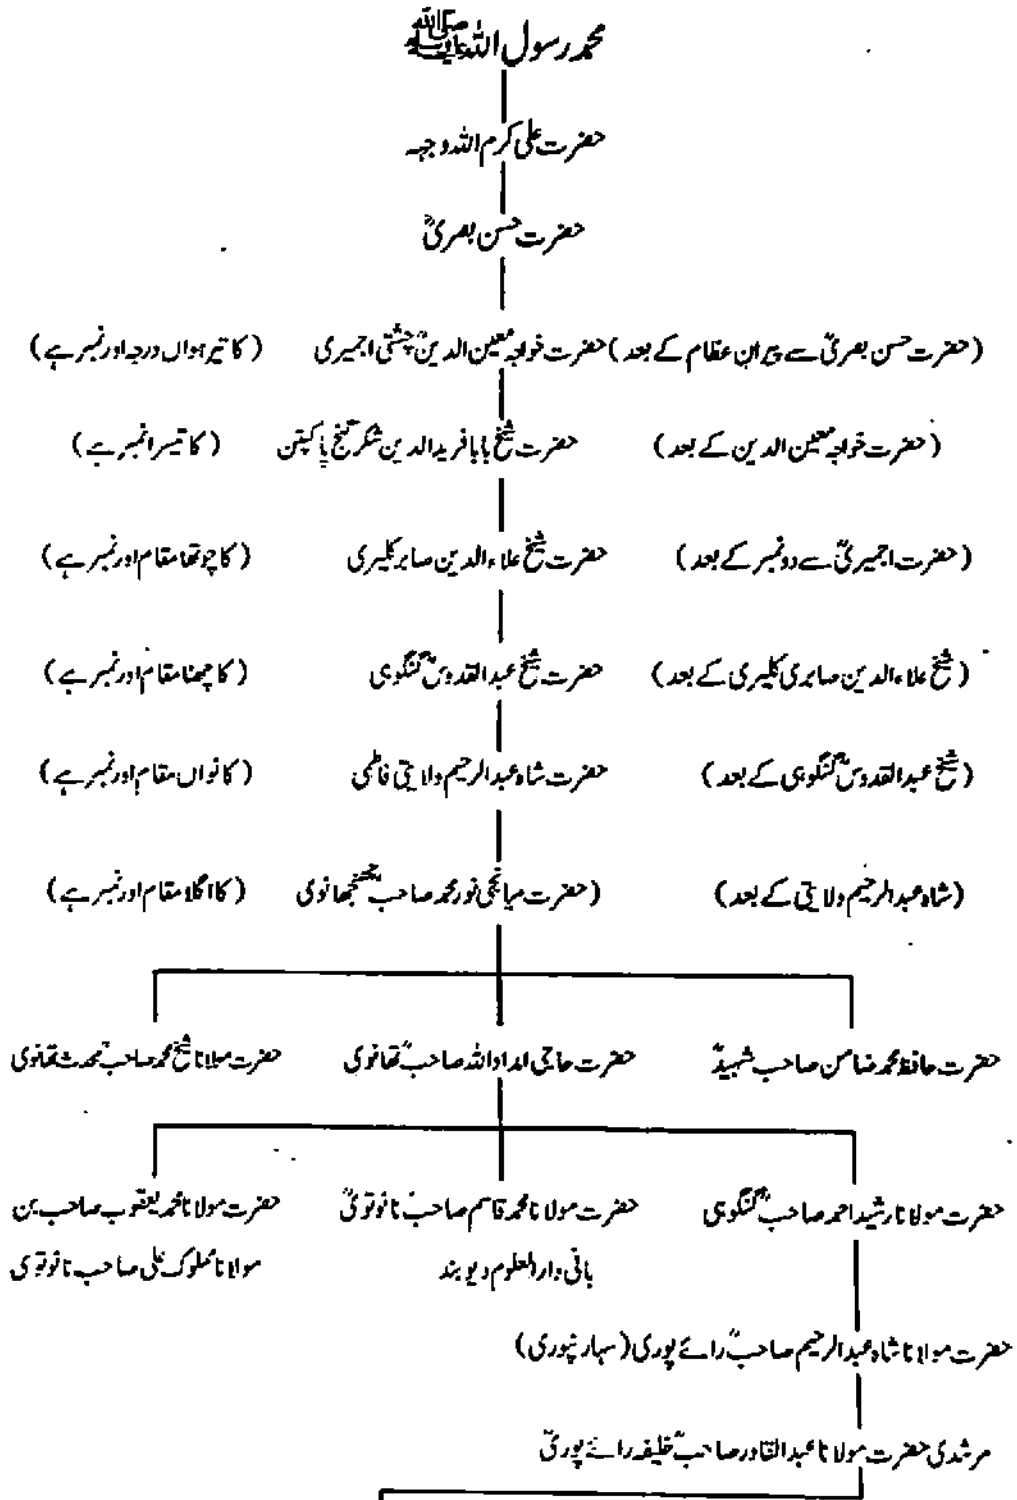 محمد رسول اللہ ﷺ
حضرت علی کرم اللہ وجہہ
حضرت حسن بصریؒ
(حضرت حسن بصریؒ سے پیران عظام کے بعد) حضرت خواجہ معین الدینؒ چشتی اجمیری (کا تیرہواں درجہ اور نمبر ہے)
(حضرت خواجہ معین الدین کے بعد) حضرت شیخ بابا فرید الدین شکر گنج پاکپتن (کا تیسرا نمبر ہے)
(حضرت اجمیریؒ سے دو نمبر کے بعد) حضرت شیخ علاءالدین صابر کلیری (کا چوتھا مقام اور نمبر ہے)
(شیخ علاءالدین صابری کلیری کے بعد) حضرت شیخ عبدالقدوسؒ گنگوہی (کا چھٹا مقام اور نمبر ہے)
(شیخ عبدالقدوسؒ گنگوہی کے بعد) حضرت شاہ عبدالرحیم ولایتی فاطمی (کا نواں مقام اور نمبر ہے)
(شاہ عبدالرحیم ولایتی کے بعد) (حضرت میانجی نور محمد صاحبؒ جھنجھانوی (کا اگلا مقام اور نمبر ہے)
حضرت حافظ محمد ضامن صاحب شہیدؒ حضرت حاجی امداداللہ صاحبؒ تھانوی حضرت مولانا شیخ محمد صاحبؒ محدث تھانوی
حضرت مولانا رشید احمد صاحبؒ گنگوہی حضرت مولانا محمد قاسم صاحبؒ نانوتویؒ حضرت مولانا محمد یعقوب صاحب بن
بانی دارالعلوم دیوبند مولانا مملوک علی صاحب نانوتوی
حضرت مولانا شاہ عبدالرحیم صاحبؒ رائے پوری (سہارنپوری)
مرشدی حضرت مولانا عبدالقادر صاحبؒ خلیفہ رائے پوریؒ